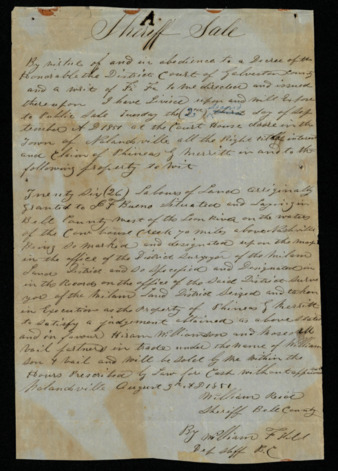 A
Sheriff Sale
By virtue of and in obedience to a Decree of the
Honorable the District Court of Galveston County
and a writ of Fi Fa to me directed and issued
there upon I have levied upon and will Expose
to Public Sale Tuesday the 2nd day of Sep
tember A D 1851 at the Court House doore in the
Town of Nolandville all the Right title interest
and Claim of Phineas G Merritt in and to the
following property to wit
Twenty Six (26) Labours of Land originally
granted to Bueno Situated and Laying in
Bell County West of the Leon River on the waters
of the Cow house Creek 70 miles above Nashville
so marked and designated up on the map
in the office of the District Surveyor of the Milam
Land District and So Specified and Designated
in the Records on the office of the Said District Survey
yor of the Milam Land District Seized and taken
in Execution as the Property of Phineas G Merritt
to Satisfy a judgement obtained as above Stated
and in favour Hiram Williamson and
Vail partners in trade under the Name of William
son & Vail and Will be Sold by Me Within the
Hours Prescribed by Law for Cash without
Nolandville August 3rd A D 1851
William Reed
Sheriff Bell County
By William F Hill
Dep Sheff B.C